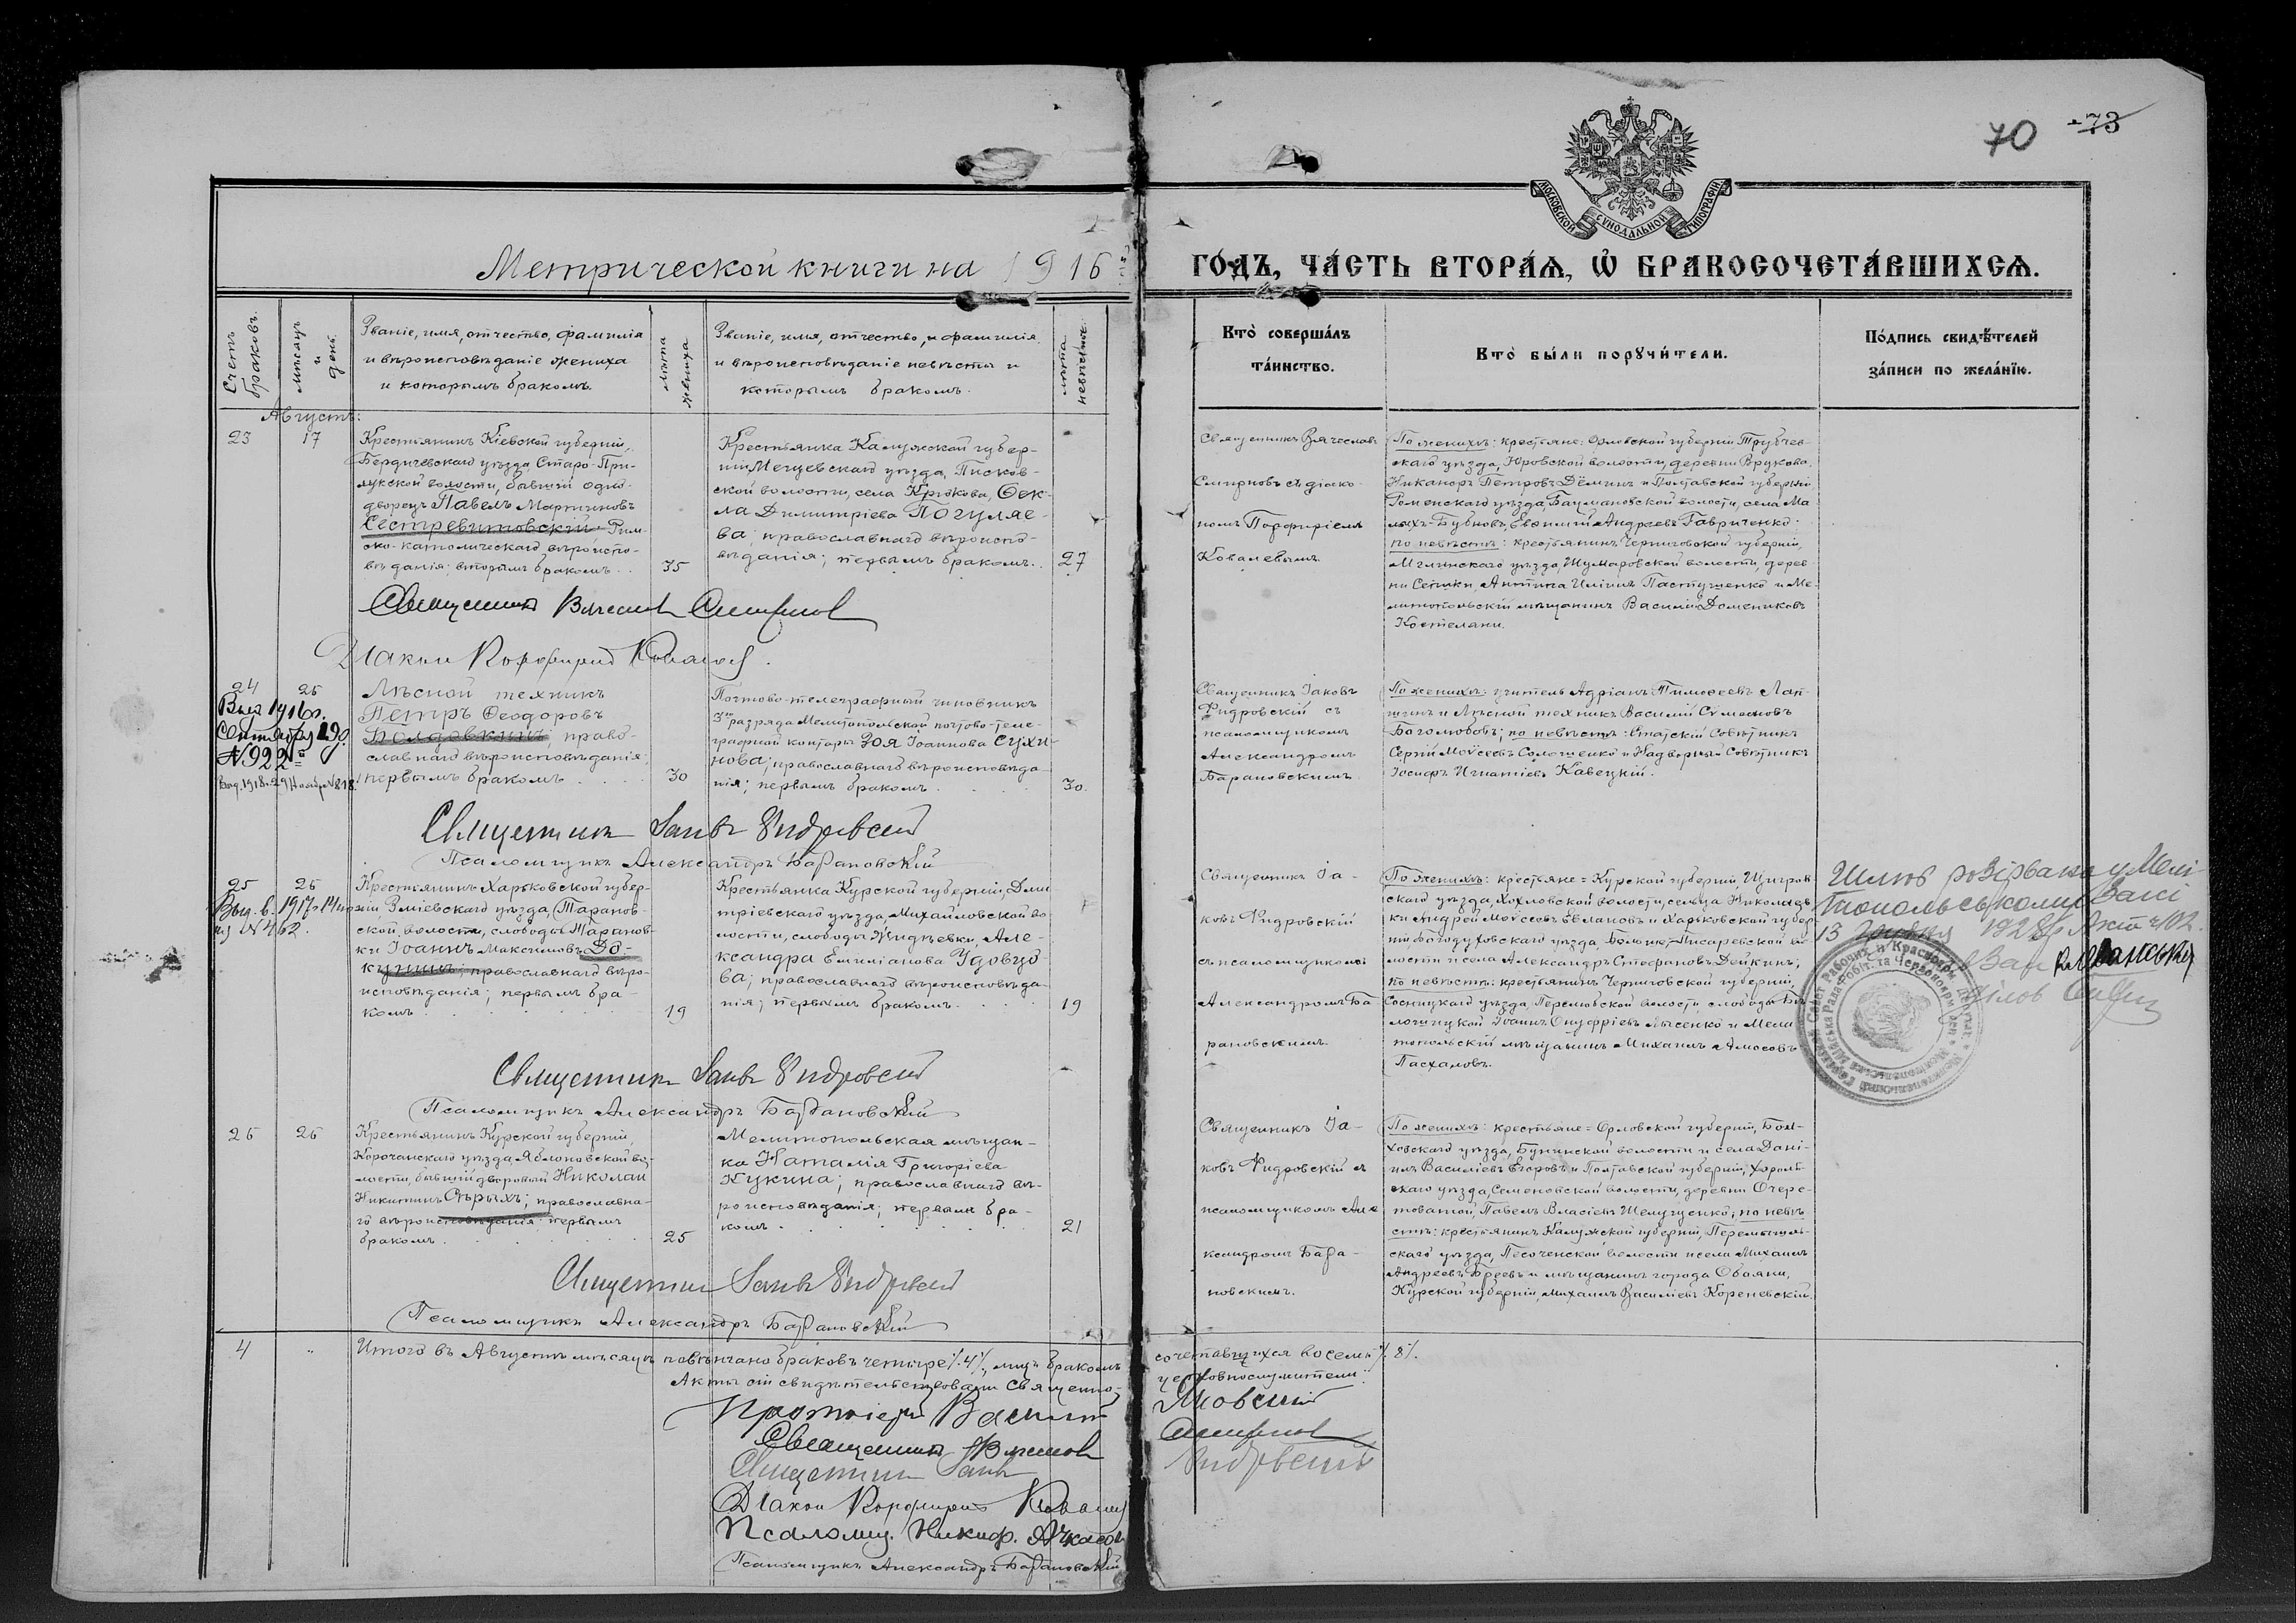 70 73
МОСКОВСКОЙ СѴНОДАЛЬНОЙ ТИПОГРАФІИ
Метрической книги на 1916 й
ГО́ДЪ, ЧА́СТЬ ВТОРА́Ѧ, Ѽ БРАКОСОЧЕТА́ВШИХСѦ.
Счетъ браковъ.
Мѣсяцъ и день.
Званіе, имя, отчество, фамилія
и вѣроисповѣданіе жениха
и которымъ бракомъ.
Лѣта жениха
Званіе, имя, отчество, и фамилія
и вѣроисповѣданіе невѣсты и
которымъ бракомъ.
Лѣта невѣсты.
Кто̀ соверша́лъ
та́инство.
Кто̀ бы́ли порꙋчи́тели.
По́дпись свидѣ́телей
за́писи по жела́нїю.
Августъ:
23
17
Крестьянинъ Кіевской губерніи,
Бердичевскаго уѣзда, Старо-При-
лукской волости, бывшій одно-
дворецъ Павелъ Мартиновъ
Сестревитовскій Рим-
ско-католическаго вѣроиспо-
вѣданія; вторымъ бракомъ.
35
Крестьянка Калужской губер-
ніи Мещевскаго уѣзда, Писков-
ской волости, села Крюкова, Ѳек-
ла Димитріева Погуляе-
ва; православнаго вѣроиспо-
вѣданія; первымъ бракомъ.
27
Священникъ Вячеславъ
Смирновъ съ діако-
номъ Порфиріемъ
Ковалевымъ.
По женихѣ: крестьяне: Орловской губерніи Трубчев-
скаго уѣзда, Юровской волости, деревни Вруково.
Никаноръ Петровъ Дёминъ и Полтавской губерніи
Роменскаго уѣзда, Бацмановской волости, села Ма
лыхъ-Бубновъ, Евѳимій Андреевъ Гавриченко:
по невѣстѣ: крестьянинъ Черниговской губерніи,
Мглинскаго уѣзда, Шумаровской волости, дерев
ни Сетки, Антипа Иліинъ Пастушенко и Ме-
литопольскій мѣщанинъ Василій Домениковъ
Костеляни.
Священникъ Вячеславъ Смирновъ
Діаконъ Порфирій Ковалевъ.
24
26
Выд 1916 г.
Сентября 19 д.
№ 922
Выд. 1918 г. 29 Ноября № 818.
Лѣсной техникъ
Петръ Ѳеодоровъ
Болдовкинъ, право-
славнаго вѣроисповѣданія;
первымъ бракомъ
30
Почтово-телеграфный чиновникъ
3го разряда Мелитопольской почтово-теле-
графной конторы Зоя Іоаннова Сухи-
нова; православнаго вѣроисповѣда-
нія; первымъ бракомъ
30.
Священникъ Іаковъ
Чидровскій съ
псаломщикомъ
Александромъ
Барановскимъ.
По женихѣ: учитель Адріанъ Тимоѳеевъ Лап-
шинъ и Лѣсной техникъ Василій Симеоновъ
Боголюбовъ; по невѣстѣ: Статскій Совѣтникъ
Сергій Моѵсеевъ Солошенко и Надворный Совѣтникъ
Іосифъ Игнатіевъ Кавецкій.
Священникъ Іаковъ Чидровскій
Псаломщикъ Александръ Барановскій
25
26
Выд. в. 1917 г. 14
№ 462.
Крестьянинъ Харьковской губер-
ніи, Зміевскаго уѣзда, Таранов-
ской, волости, слободы Таранов
ки Іоаннъ Максимовъ До-
кунинъ; православнаго вѣро-
исповѣданія; первымъ бра-
комъ
19
Крестьянка Курской губерніи, Дми
тріевскаго уѣзда, Михайловской во
лости, слободы Жидѣевки, Але-
ксандра Емиліанова Удовцо
ва; православнаго вѣроисповѣда-
нія; первымъ бракомъ
19
Священникъ Іа-
ковъ Чидровскій
съ псаломщикомъ
Александромъ Ба
рановскимъ.
По женихѣ: крестьяне = Курской губерніи, Щигров
скаго уѣзда, Хохловской волости, сельца Николаев
ки Андрей Моѵсеевъ Евлановъ и Харьковской губер
ніи Богодуховскаго уѣзда, Больше-Писаревской во
лости и села Александръ Стефановъ Дейкинъ;
по невѣстѣ: крестьянинъ Черниговской губерніи,
Сосницкаго уѣзда, Перелюбской волости, слободы Бѣ
лошицкой Іоаннъ Онуфріевъ Лысенко и Мели
топольскій мѣщанинъ Михаилъ Амосовъ
Пасхаловъ.
Шлюб розірвано у Мелі
топольському Загсі
13 грудня 1928 р Акт ч 102.
Священникъ Іаковъ Чидровскій
Псаломщикъ Александръ Барановскій
26
26
Крестьянинъ Курской губерніи,
Корочанскаго уѣзда, Яблоновской во-
лости, бывшій дворовый Николай
Никитинъ Сѣрыхъ; православна-
го вѣроисповѣданія; первымъ
бракомъ
25
Мелитопольская мѣщан-
ка Наталія Григоріева
Кукина; православнаго вѣ-
роисповѣданія; первымъ бра-
комъ
21
Священникъ Іа-
ковъ Чидровскій съ
псаломщикомъ Але
ксандромъ Бара-
новскимъ.
По женихѣ: крестьяне = Орловской губерніи, Бол-
ховскаго уѣзда, Бунинской волости и села Дані-
илъ Василіевъ Егоровъ и Полтавской губерніи, Хороль-
скаго уѣзда, Семеновской волости, деревни Очере-
товатой, Павелъ Власіевъ Шелущенко; по невѣ
стѣ: крестьянинъ Калужской губерніи, Перемышль-
скаго уѣзда, Песоченской волости и села Михаилъ
Андреевъ Бреевъ и мѣщанинъ города Обояни,
Курской губерніи, Михаилъ Василіевъ Кореневскій.
Священникъ Іаковъ Чидровскій
Псаломщикъ Александръ Барановскій
4
Итого въ Августѣ мѣсяцѣ повѣнчано браковъ четыре /.4/., лицъ бракомъ сочетавшихся восемь /. 8/.
Акты сіи свидѣтельствовали Священно-церковнослужители:
Протоіерей Василій
Священникъ Вячеславъ Смирновъ
Священникъ Іаковъ Чидровскій
Діаконъ Порфирій Ковалевъ
Псаломщ. Никиф. Ачкасовъ
Псаломщикъ Александръ Барановскій